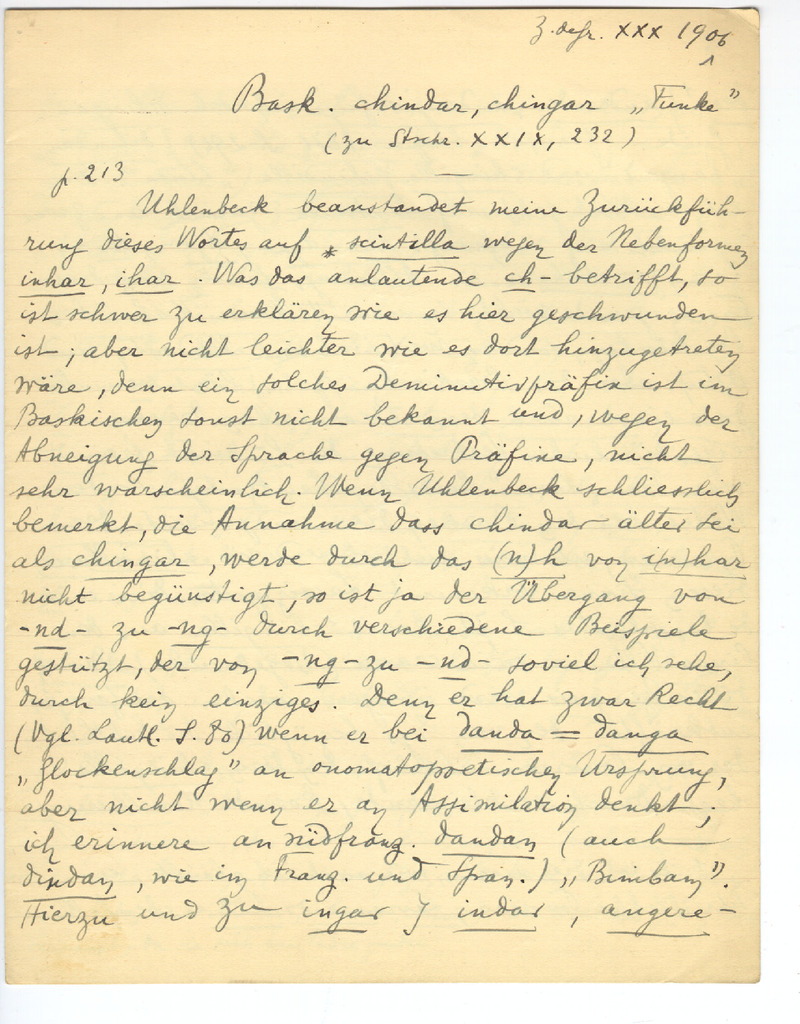 Z. desr. XXX 1906
Bask. chindar, chingar „Funke”
(zu Stschr. XXIX, 232)
p. 213
Uhlenbeck beanstandet meine Zurückfüh-
rung dieses Wortes auf *scintilla wegen der Nebenformen
inhar, ihar. Was das anlautende ch- betrifft, so
ist schwer zu erklären wie es hier geschwunden
ist; aber nicht leichter wie es dort hinzugetreten
wäre, denn ein solches Deminutivpräfix ist im
Baskischen sonst nicht bekannt und, wegen der
Abneigung der Sprache gegen Präfixe, nicht
sehr warscheinlich. Wenn Uhlenbeck schliesslich
bemerkt, die Annahme dass chindar älter sei
als chingar, werde durch das (n)h von i(n)har
nicht begünstigt, so ist ja der Übergang von
-nd- zu -ng- durch verschiedene Beispiele
gestützt, der von -ng- zu -nd- soviel ich sehe,
durch kein einziges. Denn er hat zwar Recht
(Vgl. Lautl. S. 80) wenn er bei danda = danga
„Glockenschlag” an onomatopoetischen Ursprung,
aber nicht wenn er an Assimilation denkt;
ich erinnere an südfranz. dandan (auch
dindan, wie im Franz. und Span.) „Bimbam”.
Hierzu und zu ingar > indar, angere-